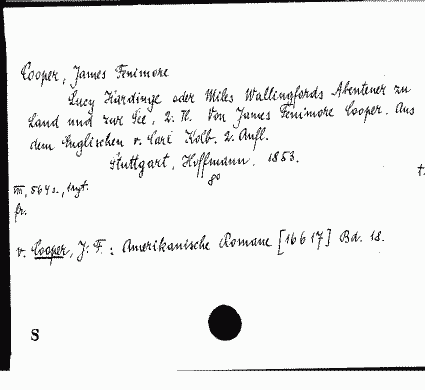 Cooper, James Fenimore
Lucy Hardinge oder Miles Wallingfords Abenteuer zu
Land und zur See, 2. Tl. Von James Fenimore Cooper. Aus
dem Englischen v. Carl Kolb. 2. Aufl.
Stuttgart, Hoffmann, 1853.
8°
VIII, 564 S.,
fr.
v. Cooper, J. F.: Amerikanische Romane [16617] Bd. 18.
S